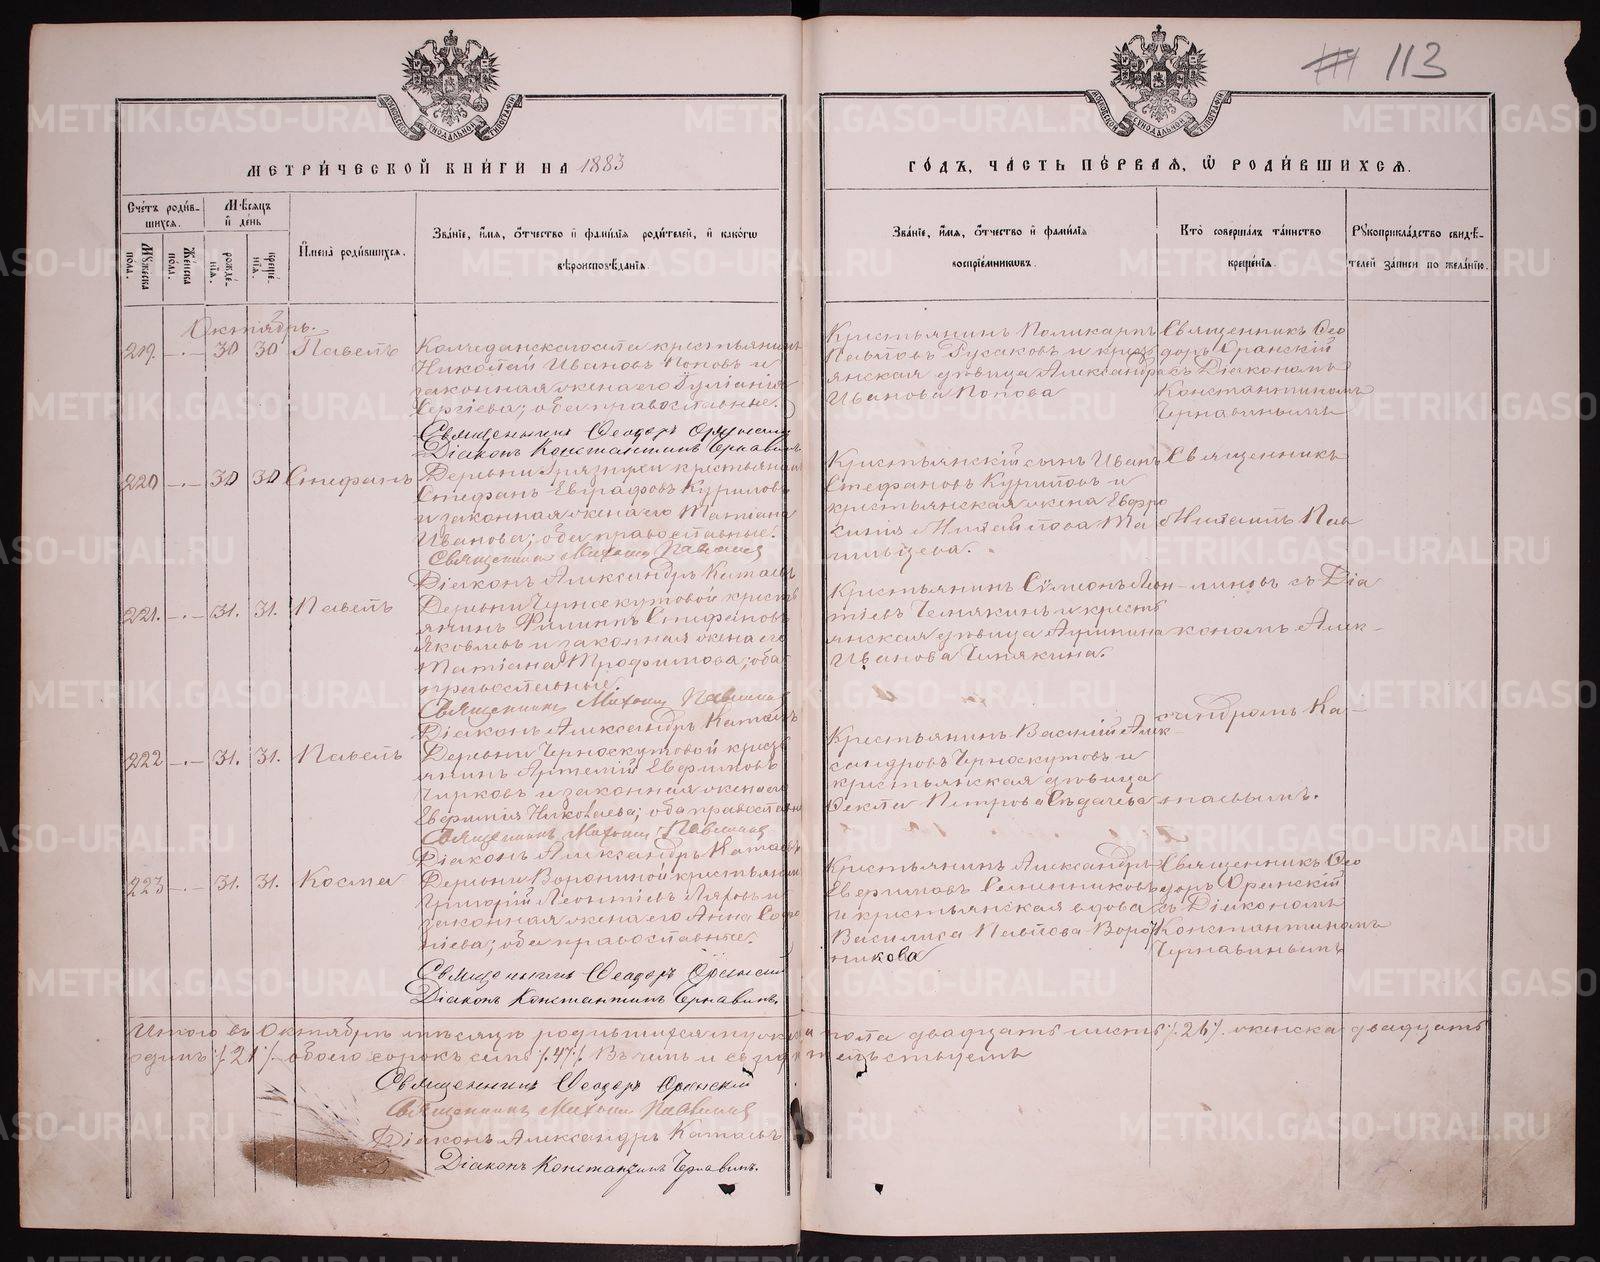 113
МЕТРИ́ЧЕСКОЙ КНИ́ГИ НА 1883
ГО́ДЪ, ЧА́СТЬ ПЕ́РВАЯ, Ѡ РОДИ́ВШИХСЯ.
Сче́тъ роди́в-
шихся.
Мꙋжеска пола.
Же́нска пола.
Мѣ́сяцъ
и де́нь
рожде́нїя.
креще́нїя.
Имена̀ роди́вшихся.
Зва́нїе, и́мя, о́тчество и фами́лїя роди́телей, и како́гѡ
вѣроисповѣ́данїя.
Зва́нїе, и́мя, о́тчество и фами́лїя
воспрїе́мникѡвъ.
Кто̀ соверша́лъ та́инство
креще́нїя.
Рꙋкоприкла́дство свидѣ́-
телей за́писи по жела́нїю.
Октябрь.
219. -.- 30 30 Павелъ
Колчеданскаго села крестьянинъ
Николай Ивановъ Поповъ и
законная жена его Іуліанія
Сергіева; оба православные.
Священникъ Ѳеодоръ Оранскій
Діаконъ Константинъ Чернавинъ
Крестьянинъ Поликарпъ
Павловъ Русаковъ и кресть
янская дѣвица Александра
Иванова Попова
Священникъ Ѳео
доръ Оранскій
съ Діакономъ
Константиномъ
Чернавинымъ
220 -.- 30 30 Стефанъ
Деревни Грязнухи крестьянинъ
Стефанъ Евграфовъ Куриловъ
и законная жена его Татіана
Иванова; оба православные.
Священникъ Михаилъ
Діаконъ Александръ Катаевъ
Крестьянскій сынъ Иванъ
Стефановъ Куриловъ и
крестьянская жена Евфро
синія Михайлова
Священникъ
Михаилъ Пав
221. -.- 31. 31. Павелъ
Деревни Черноскутовой кресть
янинъ Филиппъ Стефановъ
Яковлевъ и законная жена его
Татіана Трофимова; оба
православные.
Священникъ Михаилъ
Діаконъ Александръ Катаевъ
Крестьянинъ Симеонъ Леон-
тіевъ Чемякинъ и кресть
янская дѣвица Агрипина
Иванова Чемякина.
линовъ съ Діа
кономъ Алек-
222 -.- 31. 31. Павелъ
Деревни Черноскутовой кресть
янинъ Артемій Евфимовъ
Чирковъ и законная жена его
Евфимія Николаева; оба православные
Священникъ Михаилъ
Діаконъ Александръ Катаевъ
Крестьянинъ Василій Алек
сандровъ Черноскутовъ и
крестьянская дѣвица
Ѳекла Петрова
сандромъ Ка-
таевымъ.
223 -.- 31. 31. Косма
Деревни Ворониной крестьянинъ
Григорій Леонтіевъ Ляховъ и
законная жена его Анна
оба православные.
Священникъ Ѳеодоръ Оранскій
Діаконъ Константинъ Чернавинъ
Крестьянинъ Александръ
Евфимовъ
и крестьянская вдова
Василиса Павлова
никова
Священникъ Ѳео
доръ Оранскій
съ Діакономъ
Константиномъ
Чернавинымъ
Итого въ Октябрѣ мѣсяцѣ родившихся мужеска пола двадцать шесть /.26/. женска двадцать
одинъ /.21/. обоего сорокъ семь /.47/. Въ чемъ и свидѣтельствуемъ
Священникъ Ѳеодоръ Оранскій
Священникъ Михаилъ
Діаконъ Александръ Катаевъ
Діаконъ Константинъ Чернавинъ.
METRIKI.GASO-URAL.RU